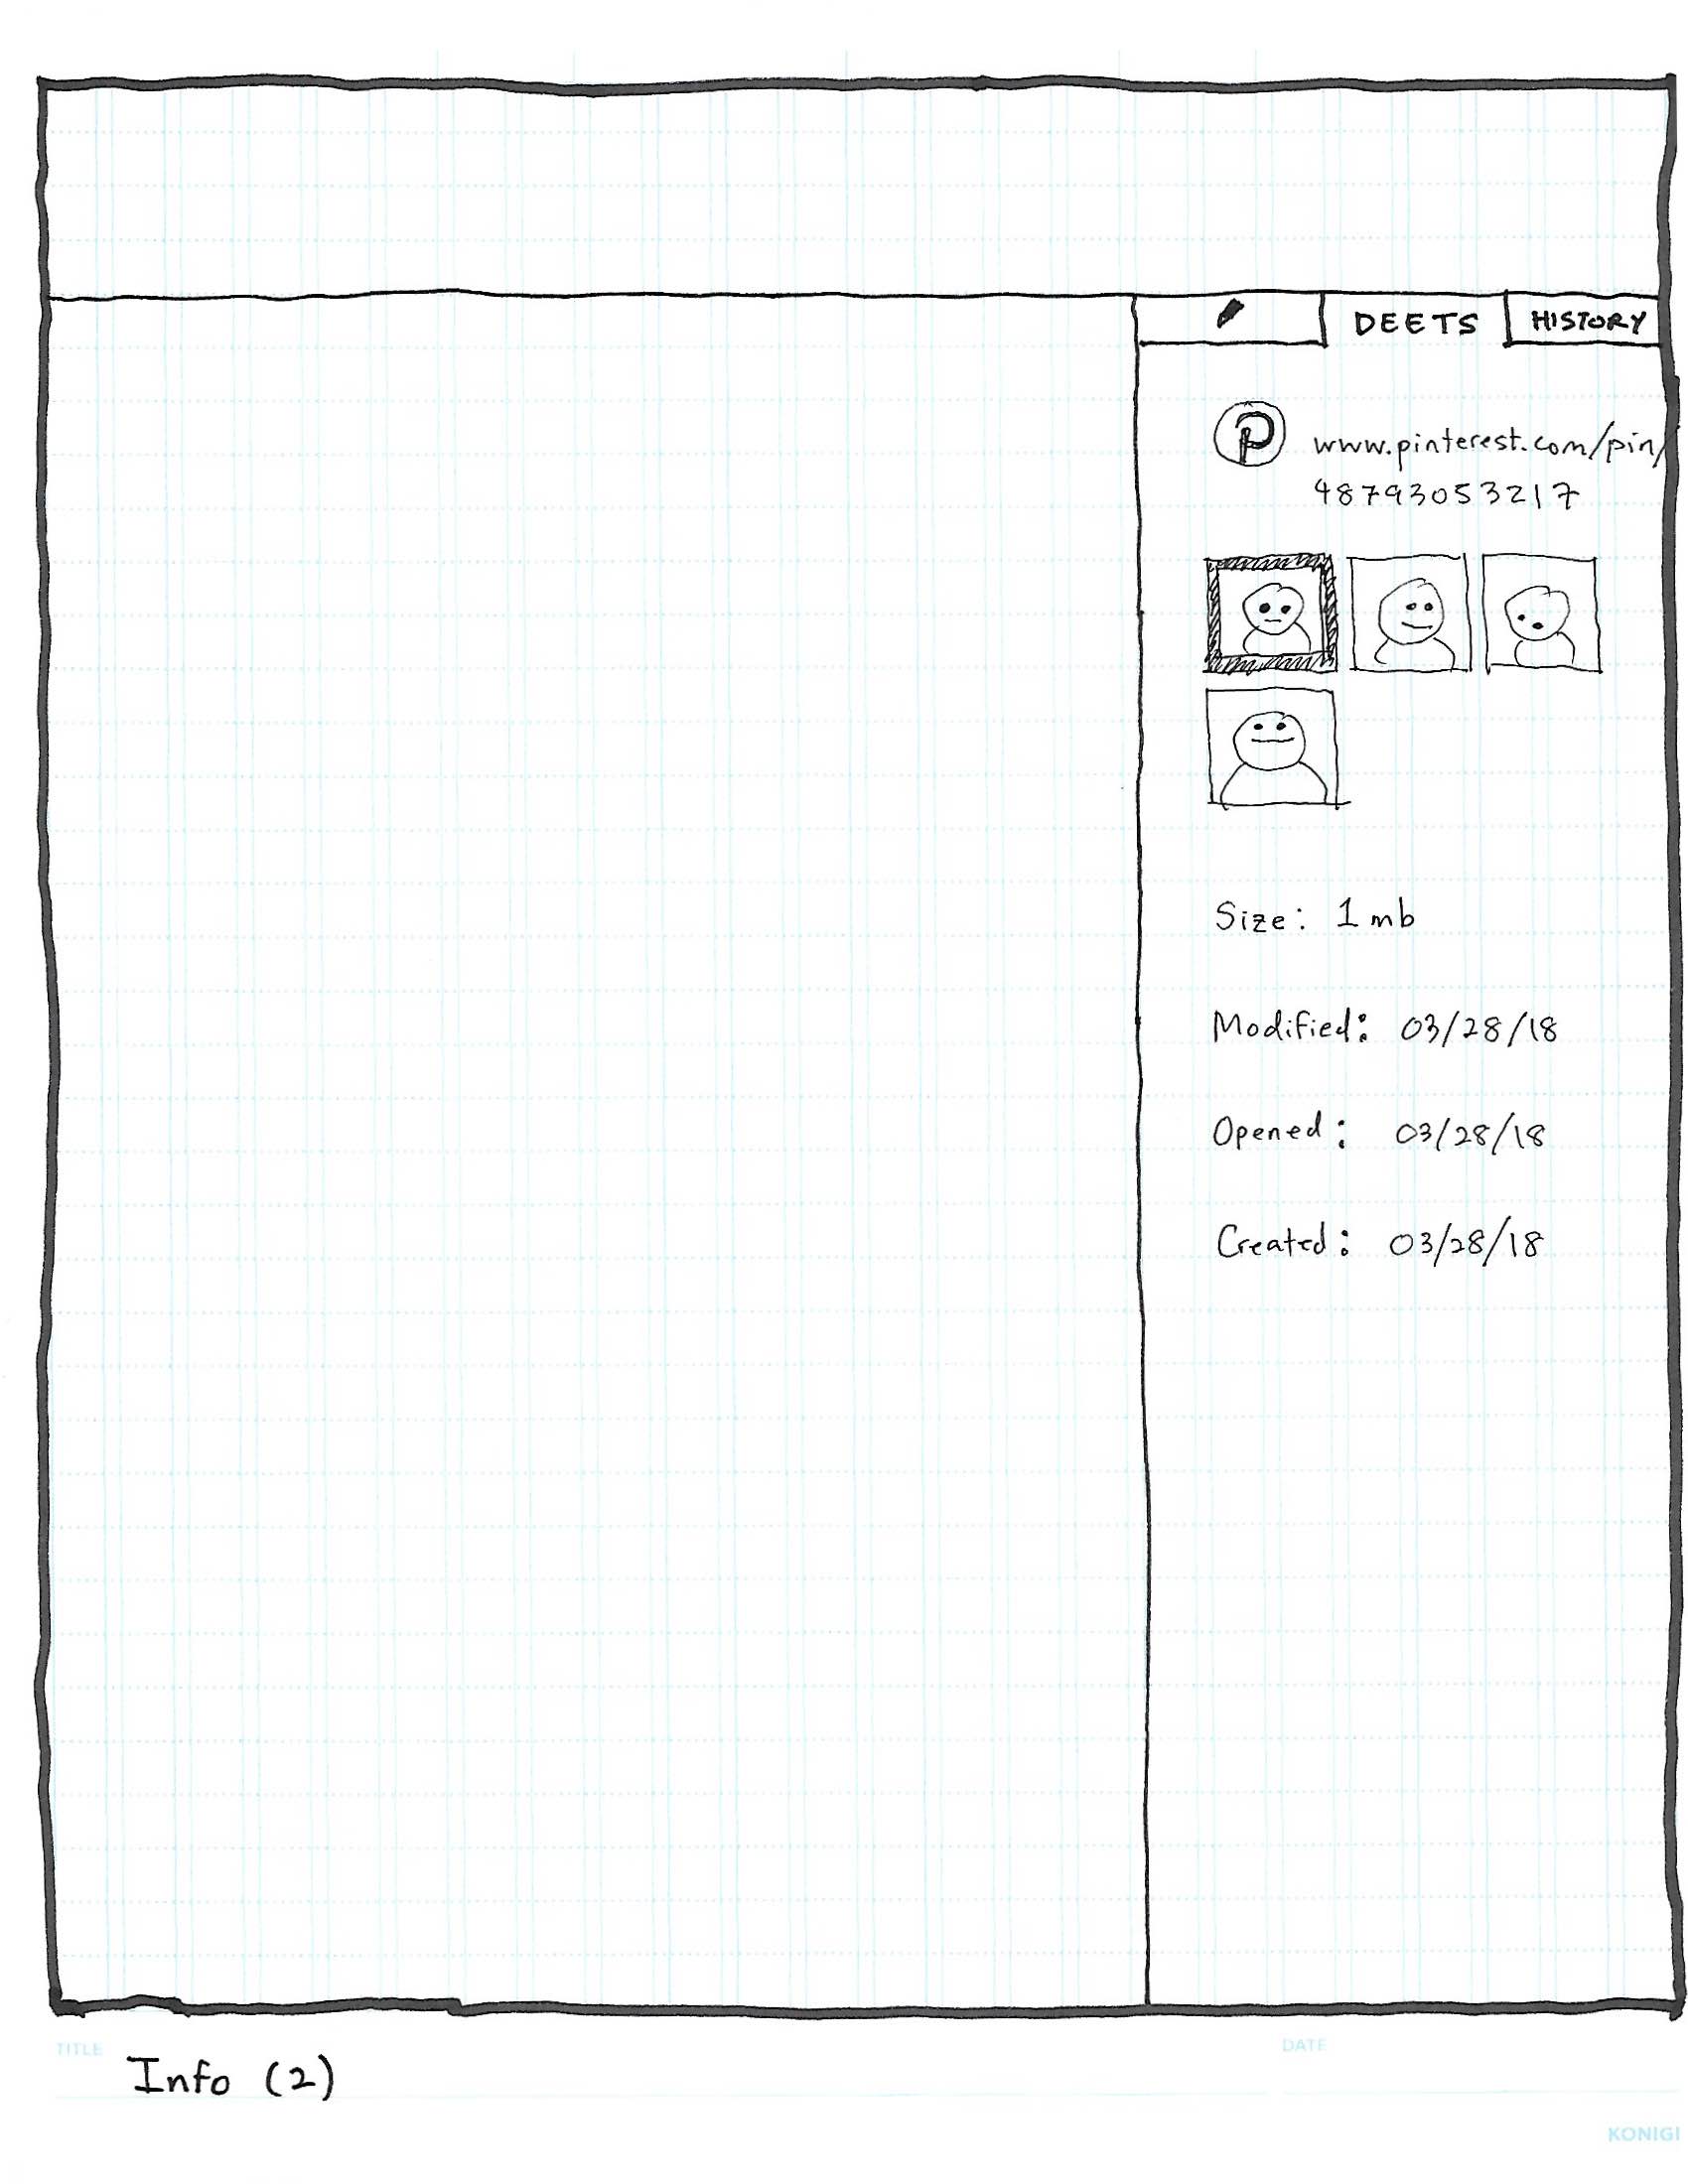 DEETS
HISTORY
P
www.pinterest.com/pin/
48793053217
Size: 1 mb
Modified: 03/28/18
Opened: 03/28/18
Created: 03/28/18
TITLE
Info (2)
DATE
KONIGI